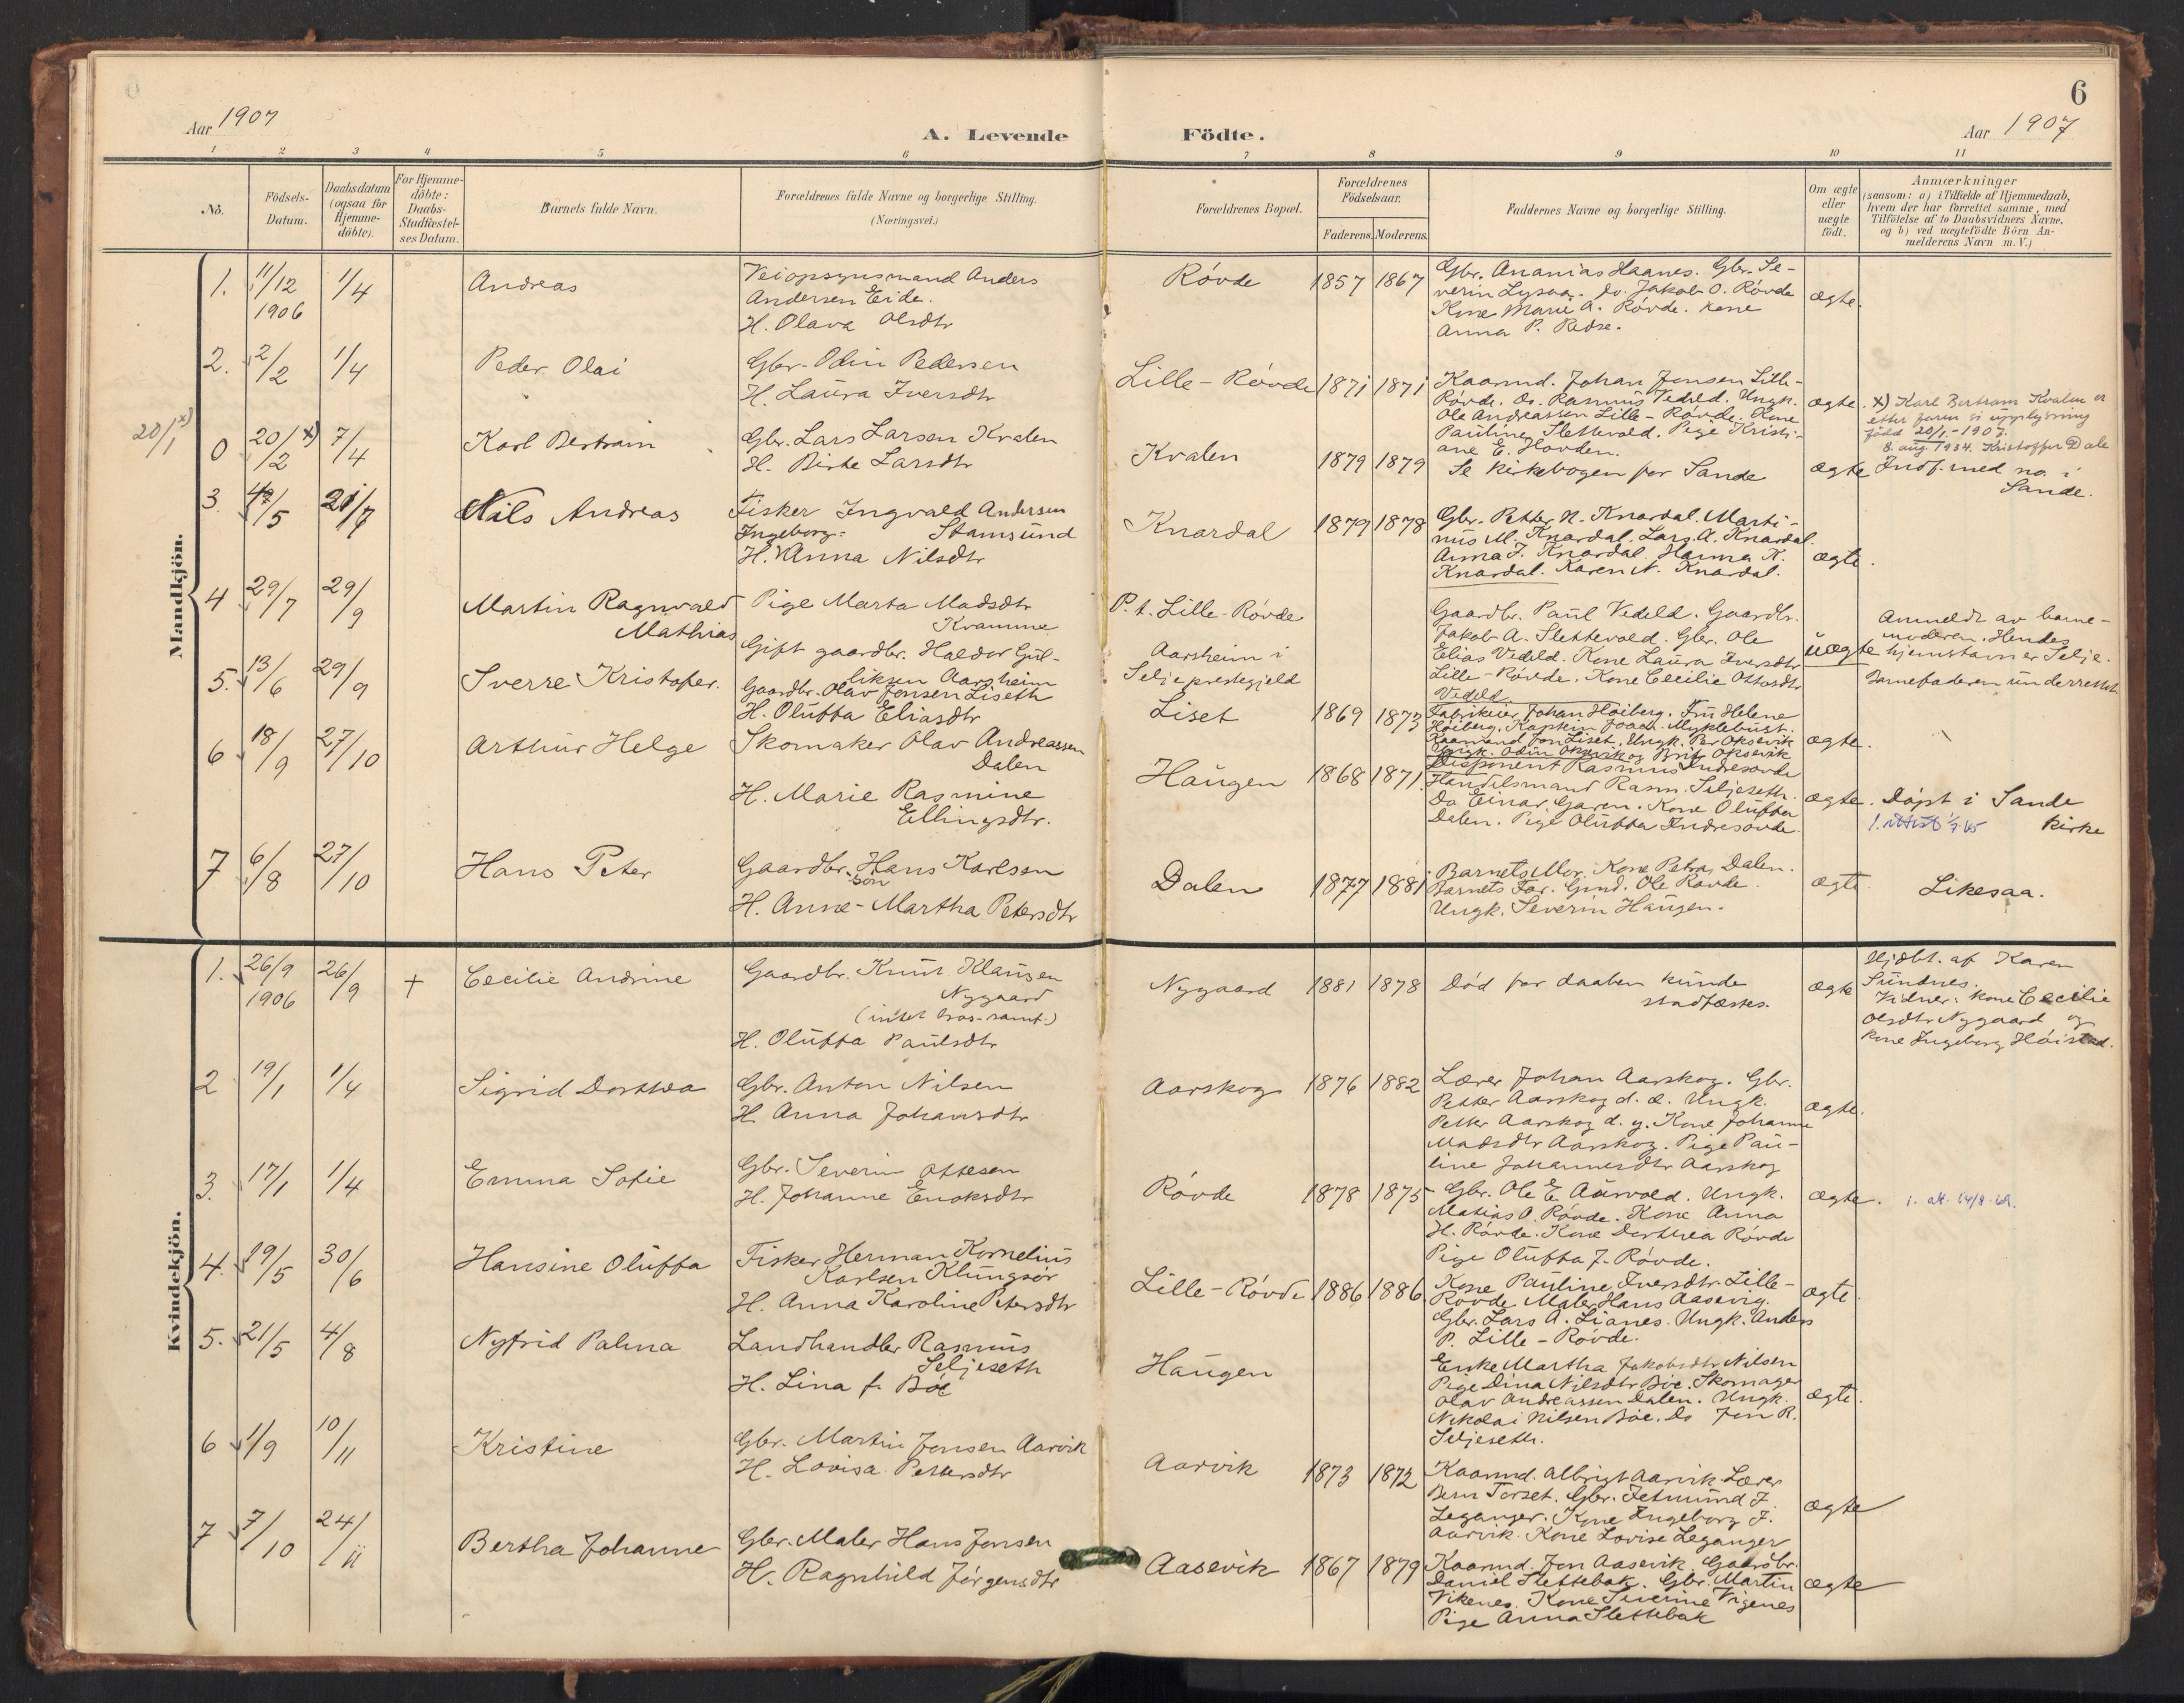 6
Aar 1907
A. Levende Födte.
Aar 1907
1 2 3 4 5 6 7 8 9 10 11
No.
Födsels-Datum.
Daabsdatum (ogsaa for Hjemme-döbte).
For Hjemme-döbte: Daabs-Stadfæstel-ses Datum.
Barnets fulde Navn.
Forældrenes fulde Navne og borgerlige Stilling.
(Næringsvei.)
Forældrenes Bopæl.
Forældrenes Födselsaar.
Faderens. Moderens.
Faddernes Navne og borgerlige Stilling.
Om ægte eller uægte födt.
Anmærkninger
(saasom: a) i Tilfælde af Hjemmedaab,
hvem der har forrettet samme, med
Tilföielse af to Daabsvidners Navne,
og b) ved uægtefödte Börn An-
melderens Navn m. V.)
Mandkjön.
1. 11/12 1906 1/4 Andreas
Veiopsynsmand Anders
Andersen Eide.
H. Olava Olsdtr
Rövde 1857 1867
Gbr. Ananias Haanes. Gbr. Se-
verin Lysaa. do. Jakob O. Rövde
Kone Marie A. Rövde. Kone
Anna P.
ægte.
2. 2/2 1/4 Peder Olai
Gbr. Odin Pedersen
H. Laura Iversdtr
Lille-Rövde 1871 1871
Kaarmd. Johan Jonsen Lille-
Rövde. Do. Rasmus Vedeld. Ungk.
Ole Andreassen Lille-Rövde. Kone
Pauline Slettevold. Pige Kristi-
ane E. Hovden.
ægte.
20/1 x)
0 20/2 x) 7/4 Karl Bertram
Gbr. Lars Larsen Kvalen
H. Birte Larsdtr
Kvalen 1879 1879
Se Kirkebogen for Sande
ægte
x) Karl Bertram Kvalen er
etter faren si upplysning
född 20/1 - 1907.
8. aug. 1934. Kristoffer Dale
Indf. med no. i
Sande.
3. 5 21/7 Nils Andreas
Fisker Ingvald Andersen
Ingeborg- Stamsund
H. Anna Nilsdtr
Knardal 1879 1878
Gbr. Petter N. Knardal. Marti-
nus M. Knardal. Lars A. Knardal.
Anna J. Knardal. Hanna K.
Knardal. Karen N. Knardal.
ægte.
4 29/7 29/9 Martin Ragnvald
Mathias
Pige Marta Madsdtr
Kvamme
Gift gaardbr. Haldor Gul-
liksen Aarsheim
P. t. Lille-Rövde
Aarsheim i
Selje prestegjeld
Gaardbr. Paul Vedeld. Gaardbr.
Jakob A. Slettevold. Gbr. Ole
Elias Vedeld. Kone Laura Iversdtr
Lille-Rövde. Kone Cecilie Ottosdtr
Vedeld
uægte
Anmeldt av barne-
moderen. Hendes
hjemstavn er Selje.
Barnefaderen underrettet.
5. 13/6 29/9 Sverre Kristofer.
Gaardbr. Olav Jonsen Liseth
H. Oluffa Eliasdtr
Liset 1869 1873
Fabrikeier Johan Höiberg. Fru Helene
Höiberg. Kaptein Joach. Myklebust.
Kaarmand Jon Liset. Ungk. Per Oksevik
Ungk. Odin Oksevik og Brit Oksevik
ægte.
6 18/9 27/10 Arthur Helge
Skomaker Olav Andreassen
Dalen
H. Marie Rasmine
Ellingsdtr.
Haugen 1868 1871.
Disponent Rasmus Indresovde
Handelsmand Rasm. Seljeseth.
Do Einar Garen. Kone Oluffa
Dalen. Pige Oluffa Indresovde.
ægte.
Döpt i Sande
kirke
7 6/8 27/10 Hans Peter
Gaardbr. Hans Karlsen
son
H. Anne-Martha Petersdtr
Dalen 1877 1881
Barnets Mor. Kone Petra Dalen.
Barnets Far. Gmd. Ole Rovde.
Ungk. Severin Haugen.
ægte.
Likesaa.
Kvindekjön.
1. 26/9 1906 26/9 + Cecilie Andrine
Gaardbr. Knut Klausen
Nygaard
H. Oluffa Paulsdtr
Nygaard 1881 1878
Död för daaben kunde
stadfæstes.
ægte
Hjdbt. af Karen
Sundnes.
Vidner: kone Cecilie
Olsdtr Nygaard og
Kone Ingeborg Höistad.
2 19/1 1/4 Sigrid Dorthea
Gbr. Anton Nilsen
H. Anna Johansdtr
Aarskog 1876 1882
Lærer Johan Aarskog. Gbr.
Petter Aarskog d. æ. Ungk.
Petter Aarskog d. y. Kone Johanne
Madsdtr Aarskog. Pige Pau-
line Johannesdtr Aarskog
ægte.
3. 17/1 1/4 Emma Sofie
Gbr. Severin Ottesen
H. Johanne Enoksdtr
Rövde 1878 1875
Gbr. Ole E. Aurvold. Ungk.
Matias O. Rövde. Kone Anna
H. Rövde. Kone Dorthea Rövde
Pige Oluffa J. Rövde.
ægte.
1. att. 14/8-62.
4. 29/5 30/6 Hansine Oluffa
Fisker Herman Kornelius
Karlsen Klungsör
H. Anna Karoline Petersdtr
Lille-Rövde 1886 1886
Kone Pauline Iversdtr. Lille-
Rövde Maler Hans Aasevig.
Gbr. Lars A. Lianes. Ungk. Anders
P. Lille-Rövde.
ægte.
5. 21/5 4/8 Nyfrid Palma
Landhandler Rasmus
Seljeseth
H. Lina f. Böe
Haugen
Enke Martha Jakobsdtr Nilsen
Pige Dina Nilsdtr Böe. Skomager
Olav Andreassen Dalen. Ungk.
Nikolai Nilsen Böe. Do Jon R.
Seljeseth.
ægte.
6 1/9 10/11 Kristine
Gbr. Martin Jonsen Aarvik
H. Lovisa Pettersdtr
Aarvik 1873 1872
Kaarmd. Albrigt Aarvik. Lærer
Bern Torset. Gbr. Jetmund J.
Leganger. Kone Ingeborg J.
Aarvik. Kone Lovise Leganger
ægte
7 7/10 24/11 Bertha Johanne
Gbr. Maler Hans Jonsen
H. Ragnhild Jörgensdtr
Aasevik 1867 1879
Kaarmd. Jon Aasevik. Gaardbr.
Daniel Slettebak. Gbr. Martin
Vikenes. Kone Siverine Vigenes
Pige Anna Slettebak
ægte